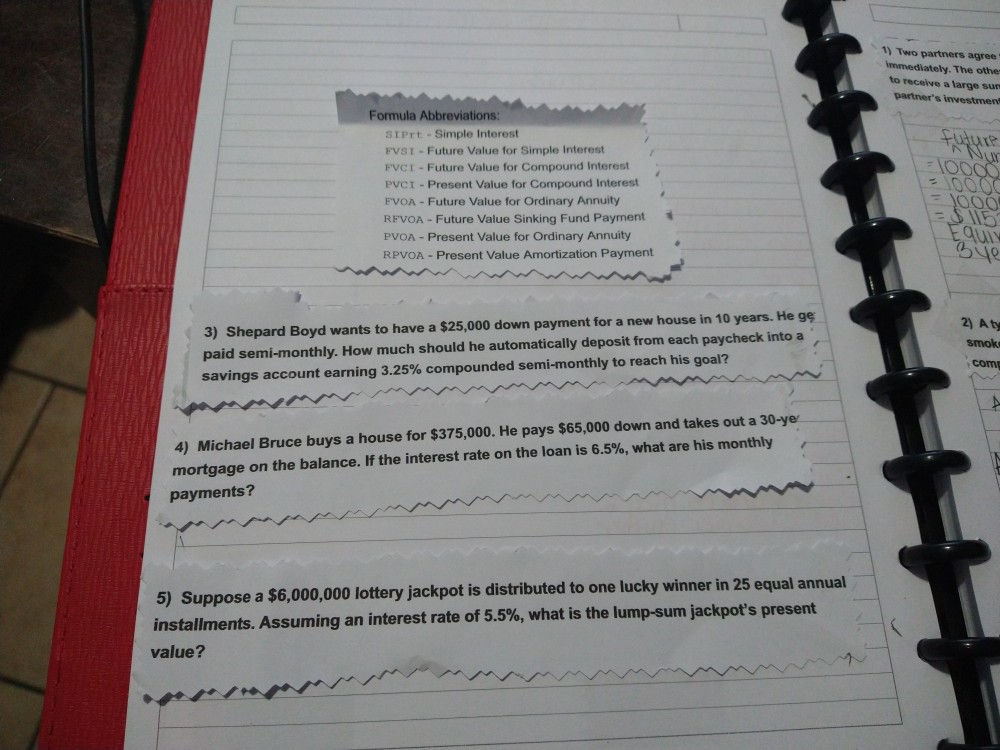 Formula Abbreviations:
SIPrt - Simple Interest
FVSI - Future Value for Simple Interest
FVCI - Future Value for Compound Interest
PVCI - Present Value for Compound Interest
FVOA - Future Value for Ordinary Annuity
RFVOA - Future Value Sinking Fund Payment
PVOA - Present Value for Ordinary Annuity
RPVOA - Present Value Amortization Payment
3) Shepard Boyd wants to have a $25,000 down payment for a new house in 10 years. He ge
paid semi-monthly. How much should he automatically deposit from each paycheck into a
savings account earning 3.25% compounded semi-monthly to reach his goal?
4) Michael Bruce buys a house for $375,000. He pays $65,000 down and takes out a 30-ye
mortgage on the balance. If the interest rate on the loan is 6.5%, what are his monthly
payments?
5) Suppose a $6,000,000 lottery jackpot is distributed to one lucky winner in 25 equal annual
installments. Assuming an interest rate of 5.5%, what is the lump-sum jackpot's present
value?
1) Two partners agree
immediately. The othe
to receive a large sum
partner's investment
future
=10000
=10000
=10000
3 ye
2) A ty
smoke
comp